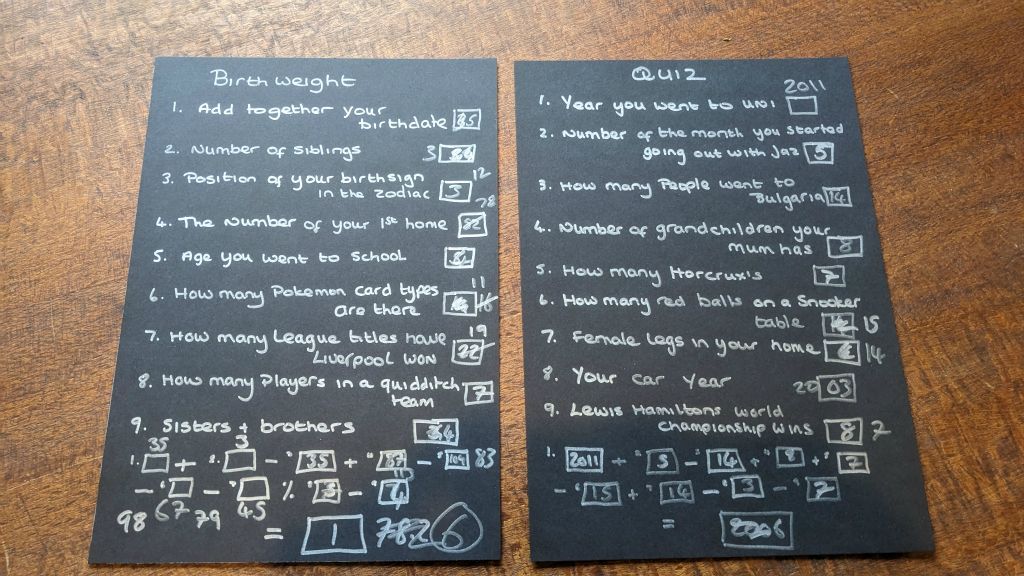 Birth weight
1. Add together your
birthdate 35
2. Number of siblings 3
3. Position of your birthsign 12
in the zodiac 3
78
4. The number of your 1st home
5. Age you went to school
6. How many Pokemon card types 11
are there
7. How many League titles have 19
Liverpool won
8. How many players in a quidditch
team 7
9. Sisters + brothers
35 3
1. + 2. - 35 + - 83
- - % 3 - 4
98 67 79 45
= 1 6
QUIZ
2011
1. Year you went to uni
2. Number of the month you started
going out with Jaz 5
3. How many People went to
Bulgaria 14
4. Number of grandchildren your
Mum has 8
5. How many Horcrux's 7
6. How many red balls on a Snooker
table 15
7. Female legs in your home 14
8. Your car year 2003
9. Lewis Hamiltons world
championship wins 8 7
1. 2011 + 5 - 14 + 8 + 7
- 15 + 14 - 3 - 7
=